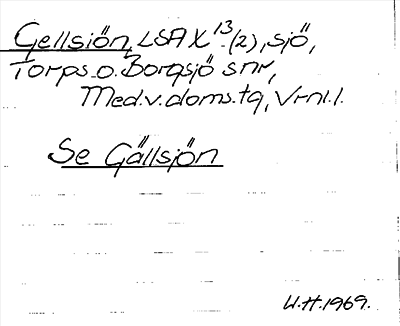 Gellsiön, LSA X 13 (2), sjö,
Torps o. Borgsjö snr,
Med.v.doms.tg, Vrnl.l.
Se Gällsjön
U.H.1969.